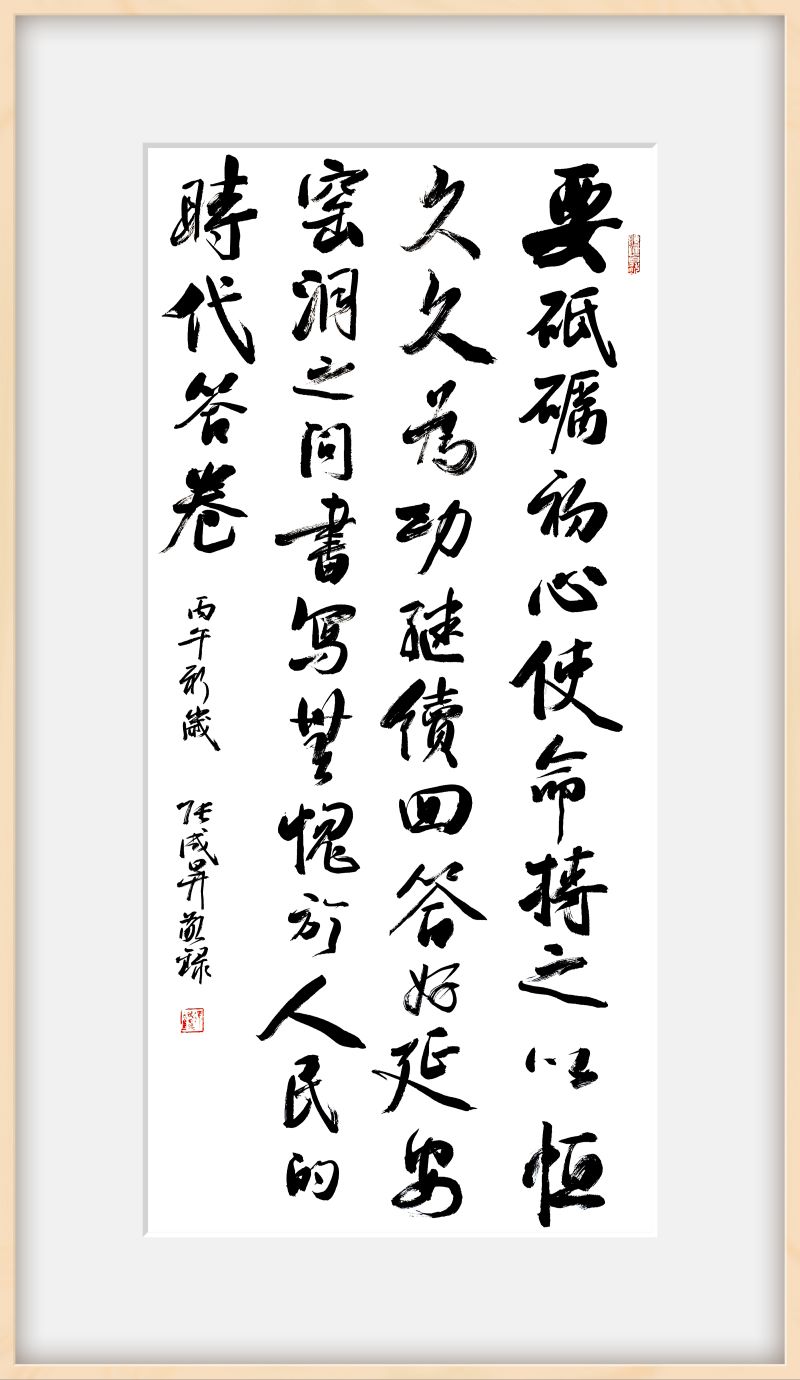 要砥礪初心使命摶之以恒
久久為功繼續回答好延安
窑洞之问書写無愧於人民的
時代答卷
丙午新歲 张成昇敬録